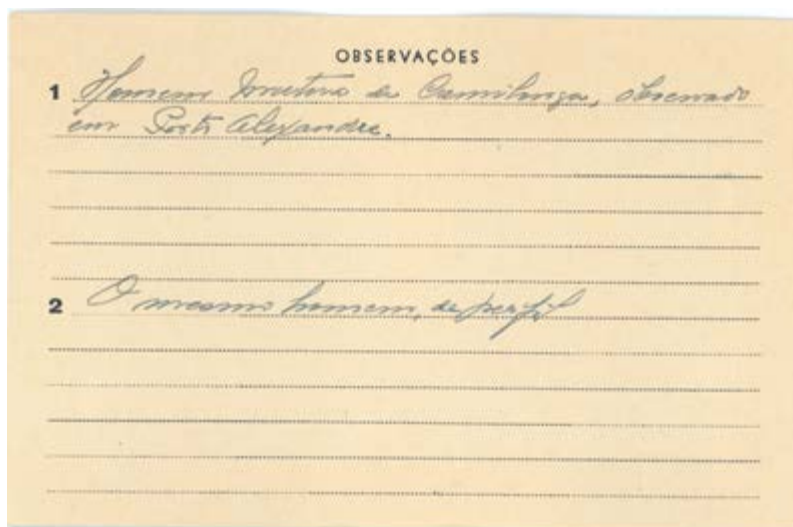 OBSERVAÇÕES
1 Homem de Camilunga, observado
em Porto Alexandre.
2 O mesmo homem, de perfil